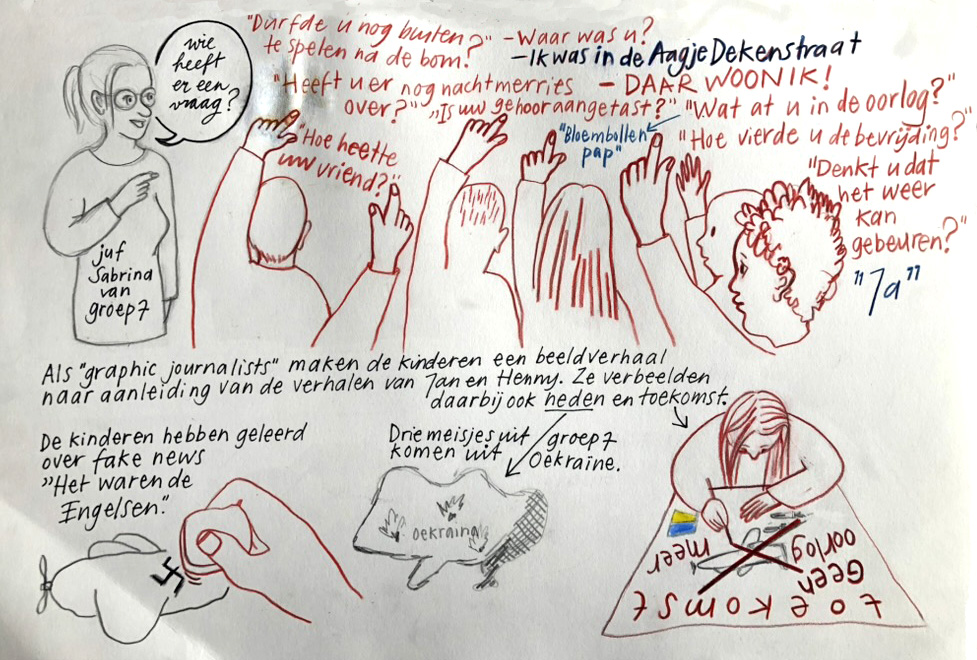 wie
heeft
er een
vraag?
juf
Sabrina
van
groep 7
"Durfde u nog buiten
te spelen na de bom?"
- Waar was u?
- Ik was in de Aagje Dekenstraat
- DAAR WOON IK!
"Heeft u er nog nachtmerries
over?"
"Is uw gehoor aangetast?"
"Wat at u in de oorlog?"
"Bloembollen
pap"
"Hoe heette
uw vriend?"
"Hoe vierde u de bevrijding?"
"Denkt u dat
het weer
kan
gebeuren?"
"Ja"
Als "graphic journalists" maken de kinderen een beeldverhaal
naar aanleiding van de verhalen van Jan en Henny. Ze verbeelden
daarbij ook heden en toekomst.
De kinderen hebben geleerd
over fake news
"Het waren de
Engelsen."
Drie meisjes uit groep 7
komen uit Oekraïne.
oekraine
toekomst
Geen
oorlog
meer